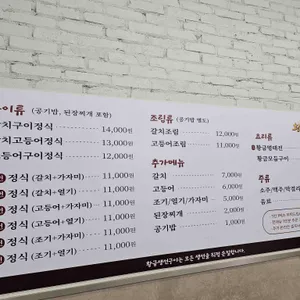 이류 (공기밥, 된장찌개 포함)
치구이정식 14,000원
치조림정식 13,000원
등어구이정식 12,000원
정식 (갈치+가자미) 11,000원
정식 (갈치+열기) 11,000원
정식 (고등어+가자미) 11,000원
정식 (고등어+열기) 11,000원
정식 (조기+가자미) 11,000원
정식 (조기+열기) 11,000원
조림류 (공기밥 별도)
갈치조림 12,000원
고등어조림 11,000원
추가메뉴
갈치 7,000원
고등어 6,000원
조기/열기/가자미 5,000원
된장찌개 2,000원
공기밥 1,000원
요리류
황금모듬구이
주류
소주/맥주/막걸리
음료
황금생선구이는 모든 생선을 직접 손질합니다.